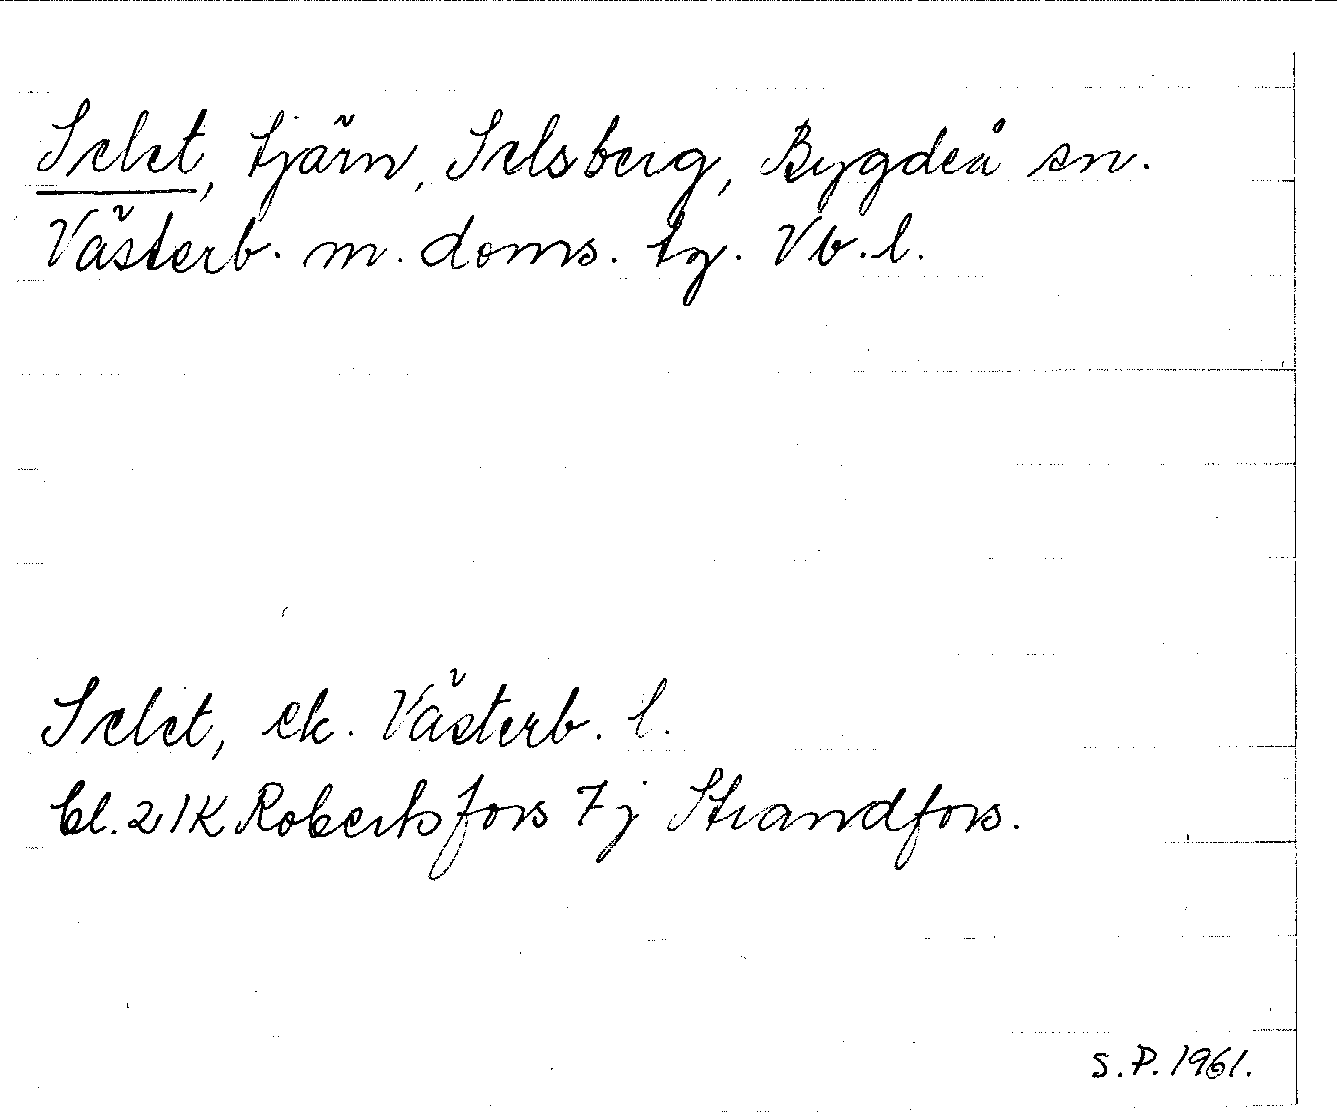 Selet, tjärn, Selsberg, Bygdeå sn.
Västerb. m. doms. tg. Vb. l.
Selet, ek. Västerb. l.
bl. 21K Robertsfors 7j Strandfors.
S.P. 1961.